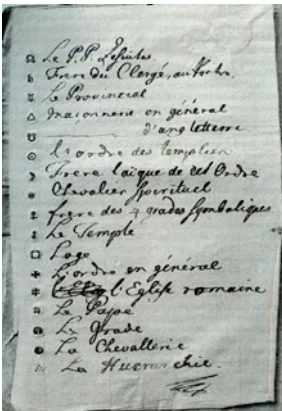 Le P.P. Jesuites
Frere du Clergé, au
Le Provincial
Maçonnerie en général
d'angleterre
L'ordre des templiers
Frere laïque de cet Ordre
Chevalier Spirituel
frere des 4 grades Symboliques
Le Temple
Loge
L'ordre en général
l'Eglise romaine
Le Pape
Le Grade
La Chevallerie
La Hierarchie.